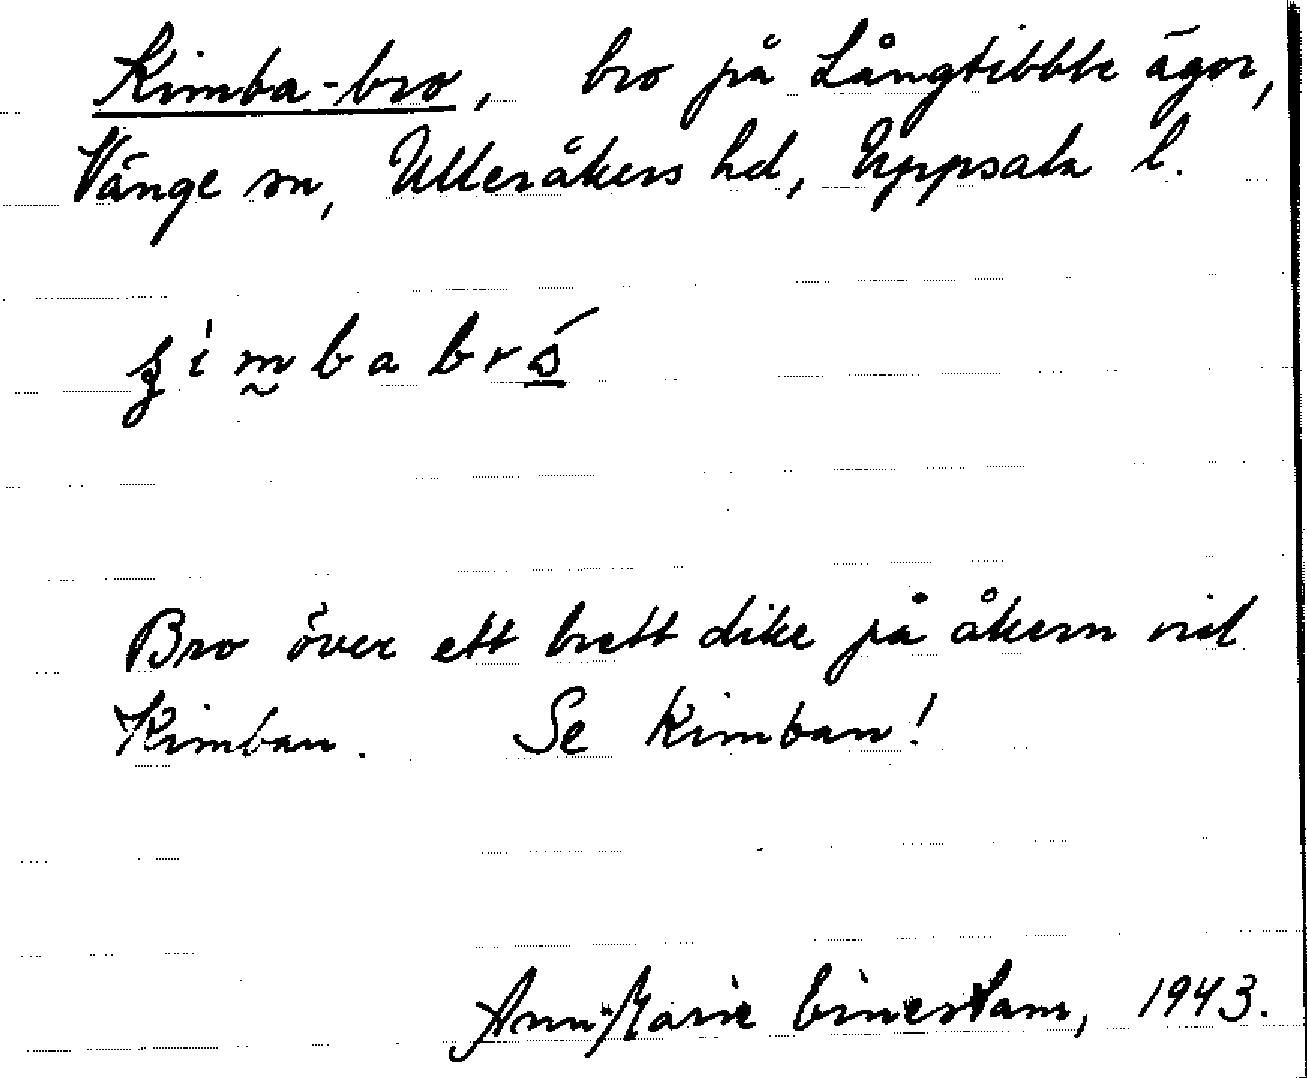 Kimba-bro, bro på Långtibble ägor,
Vänge sn, Ulleråkers hd, Uppsala l.
Bro över ett brett dike på åkern vid
Kimban. Se Kimban!
Ann-Marie Einerstam, 1943.